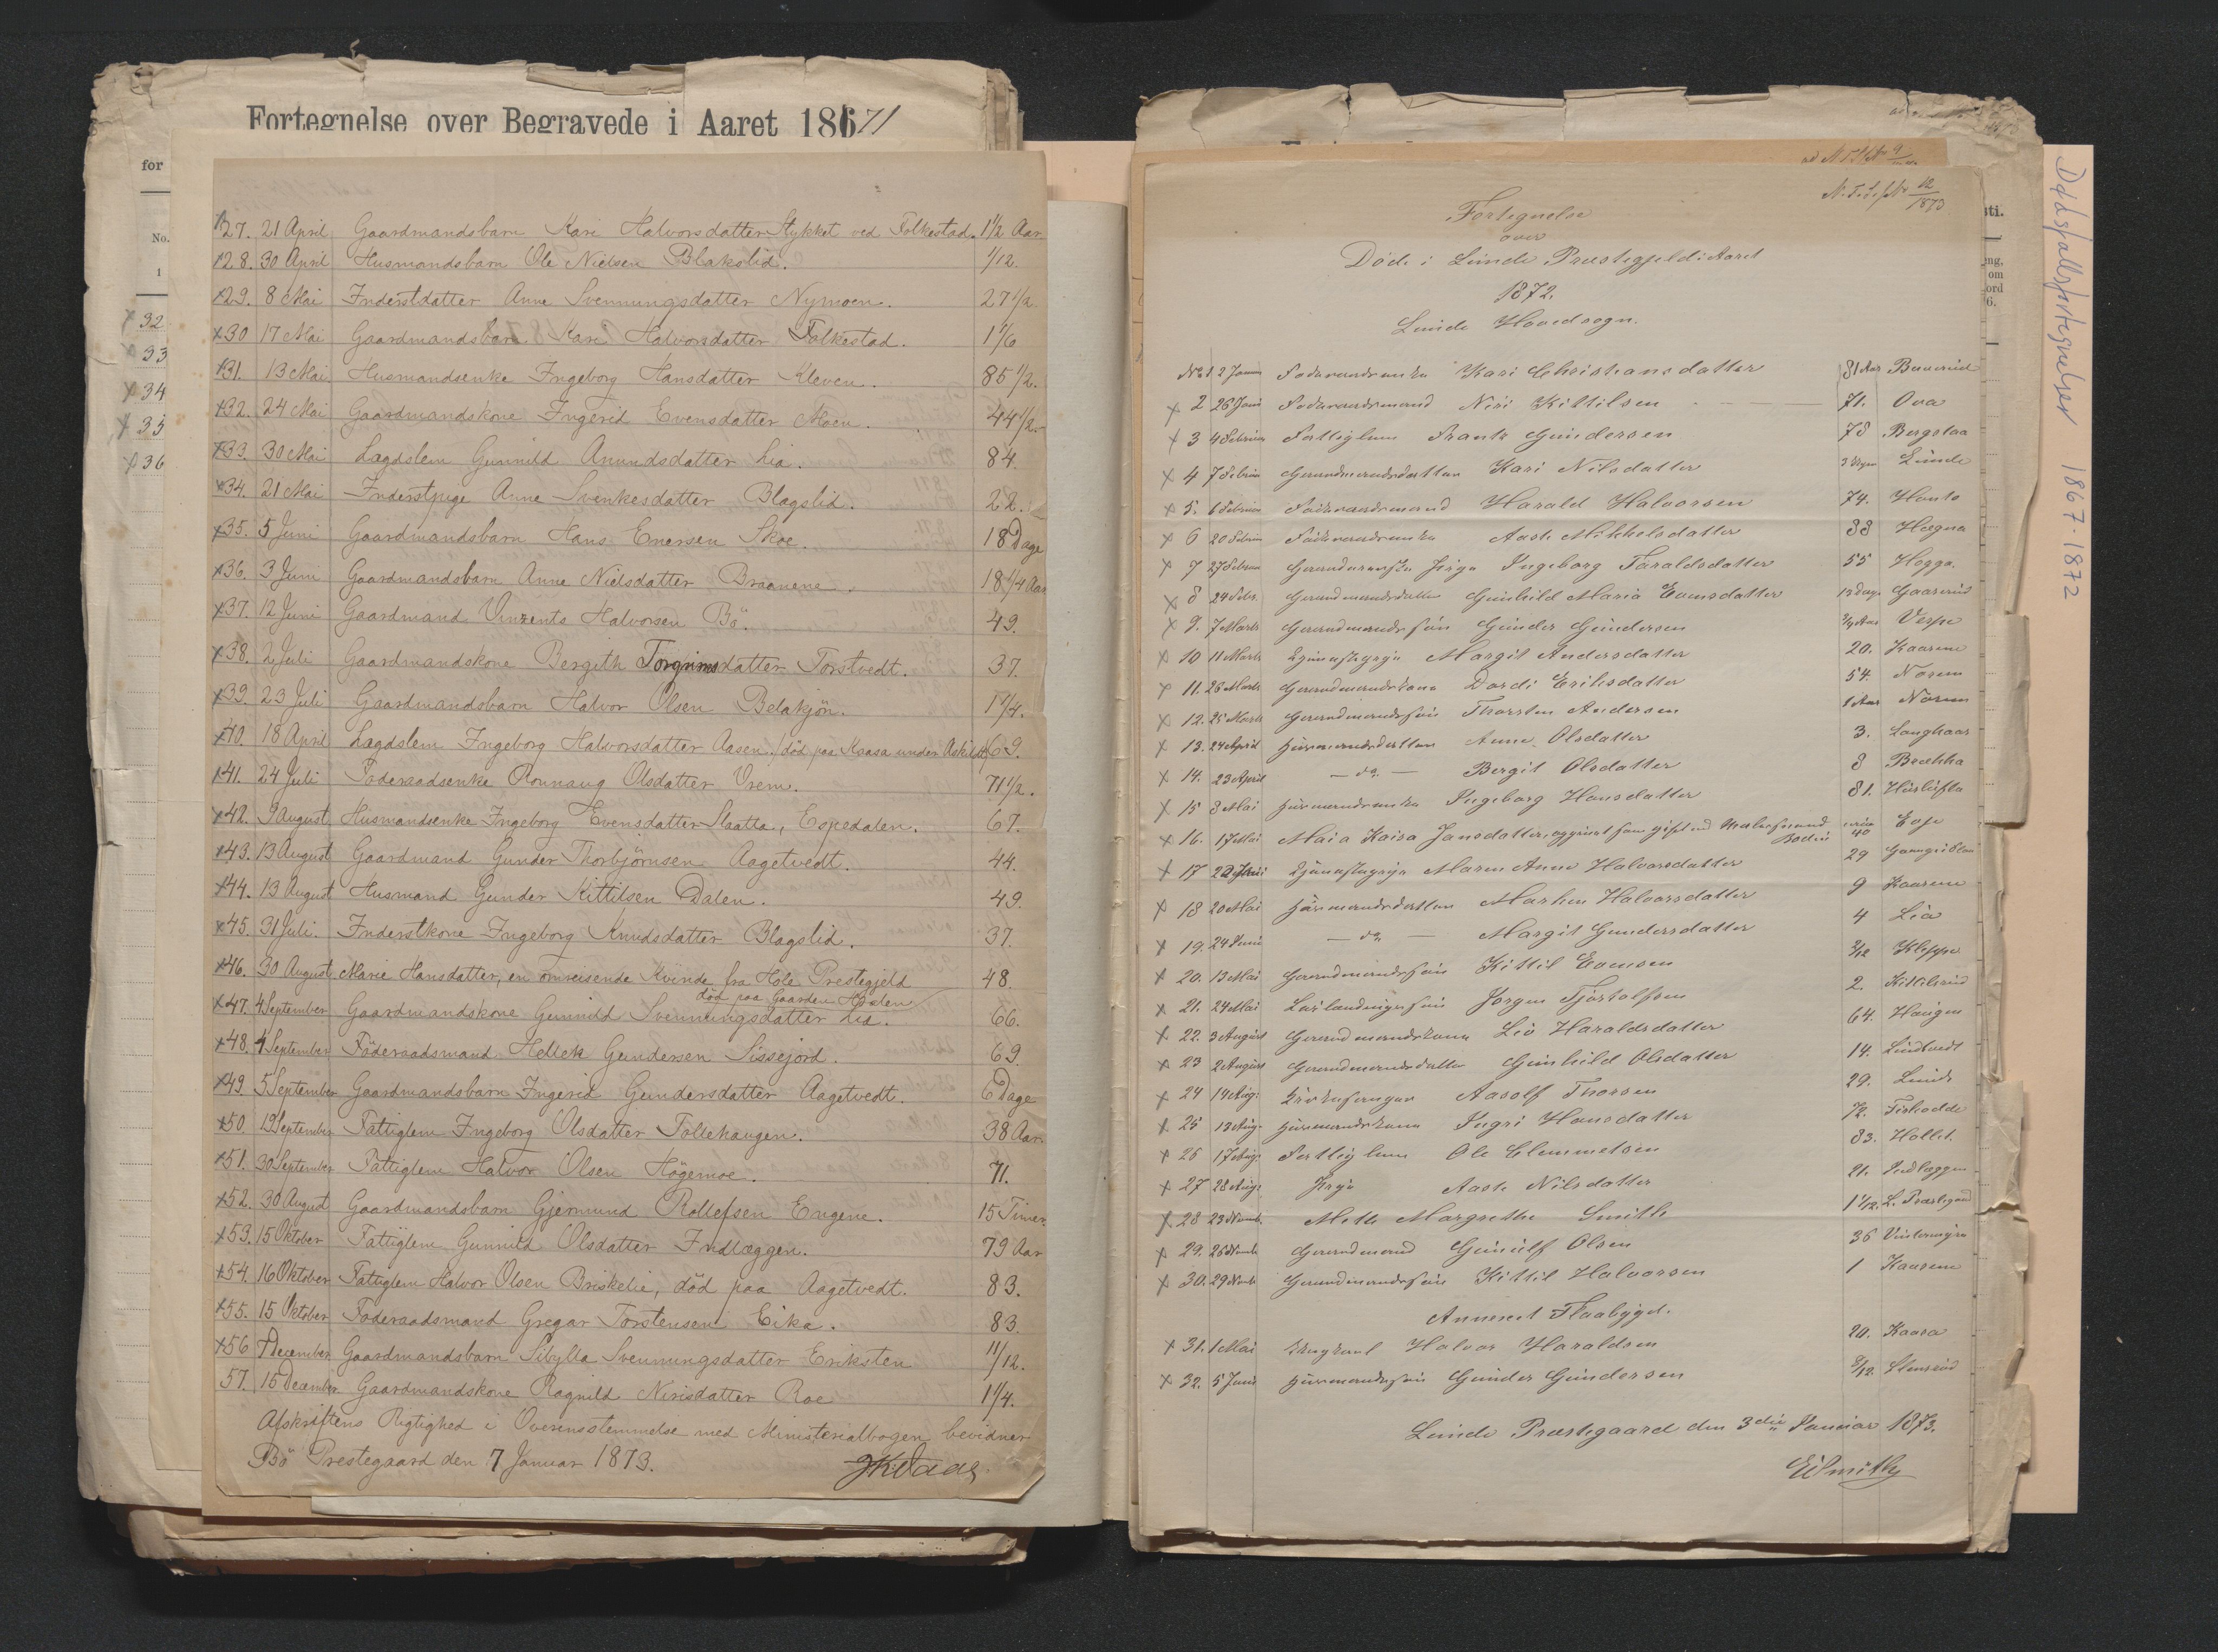 Fortegnelse over Begravede i Aaret 1871
for
No.
1
x 32
x 33
x 34
x 35
x 36
x27. 21 April Gaardmandsbarn Kari Halvorsdatter Stykket ved Folkestad. 1 1/2 Aar
x28. 30 April Husmandsbarn Ole Nielsen Blakslid. 1/12.
x29. 8 Mai Inderstdatter Anne Svennungsdatter Nymoen. 27 1/2.
x30 17 Mai Gaardmandsbarn Kari Halvorsdatter Folkestad. 1 1/6
x31. 13 Mai Husmandsenke Ingeborg Hansdatter Kleven. 85 1/2.
x32. 24 Mai Gaardmandskone Ingerid Evensdatter Moen. 44 1/2.
x33. 30 Mai Lægdslem Gunnild Anundsdatter Lia. 84.
x34. 21 Mai Inderstpige Anne Svenkesdatter Blagslid. 22.
x35. 5 Juni Gaardmandsbarn Hans Enersen Skoe. 18 Dage
x36. 3 Juni Gaardmandsbarn Anne Nielsdatter Braanene. 18 1/4 Aar
x37. 12 Juni Gaardmand Vinzents Halvorsen Bö. 49.
x38. 2 Juli Gaardmandskone Bergith Torgrimsdatter Torstvedt. 37.
x39. 23 Juli Gaardmandsbarn Halvor Olsen Belakjön. 1 1/4.
x40. 18 April Lægdslem Ingeborg Halvorsdatter Aasen, /død paa Kaasa under Askildt/ 69.
x41. 24 Juli Föderaadsenke Rounaug Olsdatter Vrem. 71 1/2.
x42. 9 August Husmandsenke Ingeborg Evensdatter Slaatta, Espedalen. 67.
x43. 13 August Gaardmand Gunder Thorbjörnsen Aagetvedt. 44.
x44. 13 August Husmand Gunder Kittilsen Dalen. 49.
x45. 31 Juli. Inderstkone Ingeborg Knudsdatter Blagslid. 37.
x46. 30 August Marie Hansdatter, en omreisende Kvinde fra Hole Prestegjeld 48.
død paa Gaarden
x47. 4 September Gaardmandskone Gunnild Svennungsdatter Lia. 66.
x48. 4 September Föderaadsmand Hellek Gundersen Sissejord. 69.
x49. 5 September Gaardmandsbarn Ingerid Gundersdatter Aagetvedt. 6 Dage
x50. 19 September Fattiglem Ingeborg Olsdatter Follehaugen. 38 Aar
x51. 30 September Fattiglem Halvor Olsen Högemoe. 71.
x52. 30 August Gaardmandsbarn Gjermund Rollefsen Engene. 15 Timer
x53. 15 Oktober Fattiglem Gunnild Olsdatter Indlæggen. 79 Aar
x54. 16 Oktober Fattiglem Halvor Olsen Briskelie, död paa Aagetvedt. 83.
x55. 15 Oktober Föderaadsmand Gregar Torstensen Eika. 83.
x56 7 December Gaardmandsbarn Sibylla Svennungsdatter Eriksten 11/12.
57. 15 December Gaardmandskone Ragnild Nirisdatter Roe 1 1/4.
Afskriftens Rigtighed i Overensstemmelse med Ministerialbogen bevidner
Bö Prestegaard den 7 Januar 1873.
Fortegnelse
over
Døde i Lunde Præstegjeld i Aaret
1872.
Lunde Hovedsogn.
No 1 2 Januar Foderaadsenke Kari Christiansdatter 81 Aar
x 2 26 Janu Foderaadsmand Niri Kittilsen 71. Ova
x 3 4 Februar Fattiglem Frants Gundersen 78 Bergslaa
x 4 7 Februar Gaardmandsdatter Kari Nilsdatter Lunde
x 5. 6 Februar Föderaadsmand Harald Halvorsen 74.
x 6 20 Februar Föderaadsenke Aaste Mikkelsdatter 88 Hægna
x 7 27 Februar Pige Ingeborg Taraldsdatter 55 Hogga.
x 8 24 Febr. Gaardmandsdatter Gunhild Maria Evensdatter 13 Dage
x 9. 7 Marts Gaardmandssön Gunder Gundersen Vespe
x 10 11 Marts Tjenestepige Margit Andersdatter 20. Kaasene
x 11. 26 Marts Gaardmandskone Dordi Eriksdatter 54. Norem
x 12. 25 Marts Gaardmandssön Thorsten Andersen 1 Aar Norem
x 13. 24 April Husmandsdatter Anne Olsdatter 3. Langhaar
x 14. 23 April - do - Bergit Olsdatter 8 Brækka
x 15 8 Mai Husmandsenke Ingeborg Hansdatter 81.
x 16. 17 Mai Maia Kaisa Jansdatter, opgivet som gift med circa 40 Eap
x 17 Tjenestepige Maren Anne Halvorsdatter 29
x 18 20 Mai Husmandsdatter Marken Halvorsdatter 9 Kaasene
x 19. 24 Juni - do - Margit Gundersdatter 4 Lia
x 20. 13 Mai Gaardmandssön Kittil Evensen Kleppe
x 21. 24 Mai Jörgen Tjöstolfsen 2. Kittilsrud
x 22. 3 August Gaardmandskone Liv Haraldsdatter 64. Haugen
x 23 2 August Gaardmandsdatter Gunhild Olsdatter 14. Lindtvedt
x 24 14 Aug. Kirkesanger Aasolf Thorsen 29. Lunde
x 25 13 Aug. Husmandskone Ingri Hansdatter
x 26 17 Aug. Fattiglem Ole Clemmetsen 83. Hollet.
x 27 28 Aug. Pige Aaste Nilsdatter 21. Indlæggen
x 28 23 Novemb. Mette Margrethe Smith 1 1/12. L. Præstegaard
x 29. 26 Novemb Gaardmand Gunulf Olsen 36
x 30. 29 Novemb Gaardmandssön Kittil Halvorsen 1 Kaasene
Annext Flaabygd.
x 31. 1 Mai Ungkarl Halvor Haraldsen 20. Kaasa
x 32. 5 Juni Husmandssön Gunder Gundersen Stensrud
Lunde Præstegaard den 3die Januar 1873.
ESmith
Dødsfallsfortegnelser 1867-1872